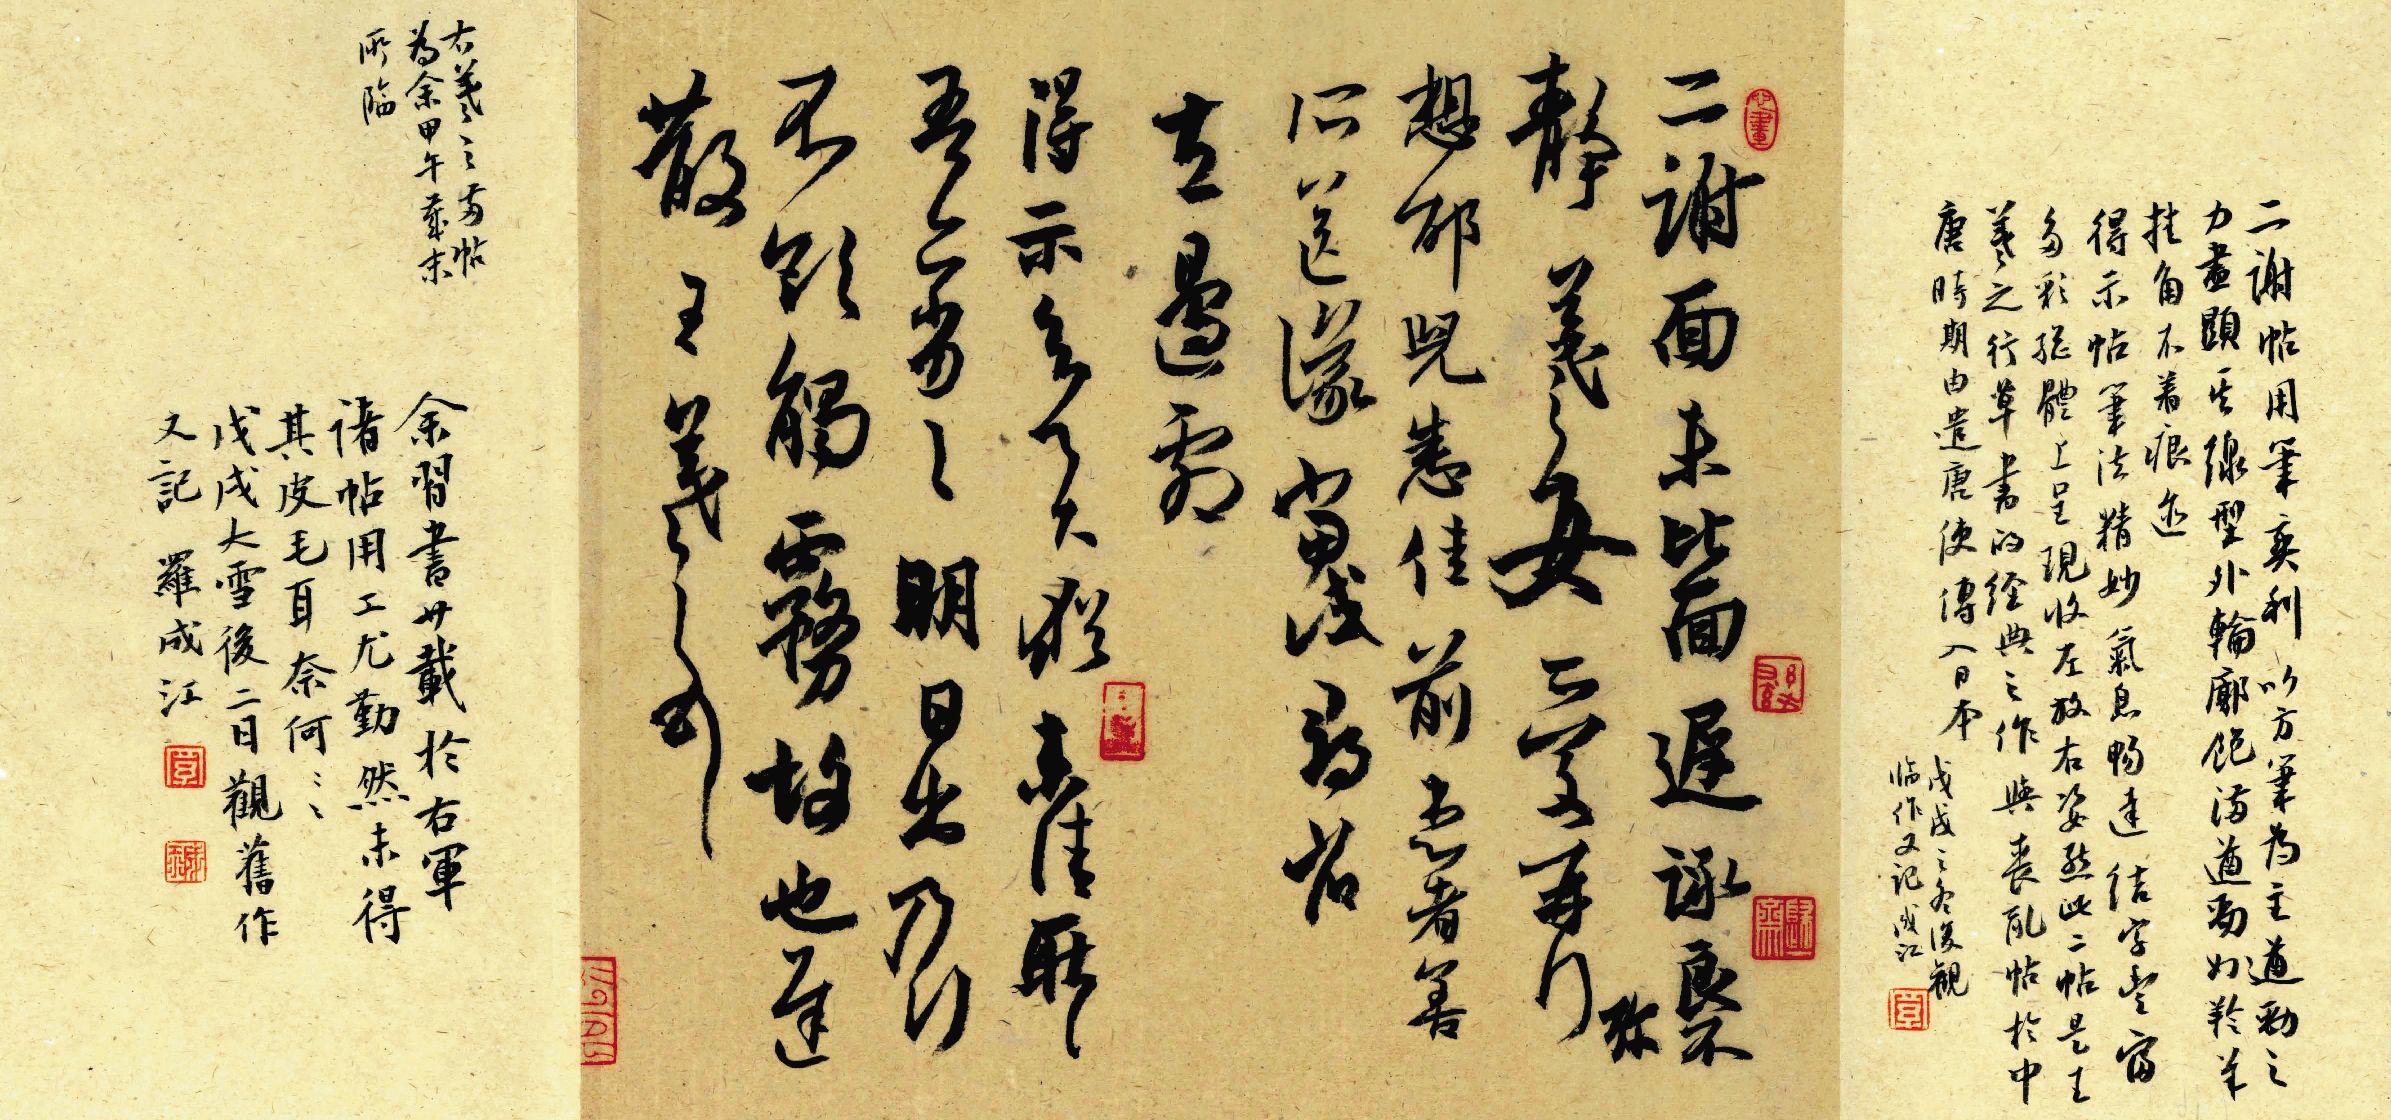 二謝帖用筆爽利以方筆為主遒勁之
力盡顯其線型外輪廓飽滿遒勁如羚羊
挂角不着痕迹
得示帖筆法精妙氣息暢達結字豐富
多彩整體上呈現收左放右姿態此二帖是王
羲之行草書的經典之作與喪亂帖於中
唐時期由遣唐使傳入日本
戊戌之冬復觀
臨作又記成江
二謝面未比面遲詠良不
靜羲之女愛再拜
想邵兒悉佳前患者善
所送議當試尋省
左邊劇
得示知足下猶未佳耿
吾亦劣劣明日出乃行
不欲觸霧故也遲
散王羲之頓首
右羲之二帖
為余甲午歲末
所臨
余習書廿載於右軍
諸帖用工尤勤然未得
其皮毛耳奈何奈何
戊戌大雪後二日觀舊作
又記 羅成江